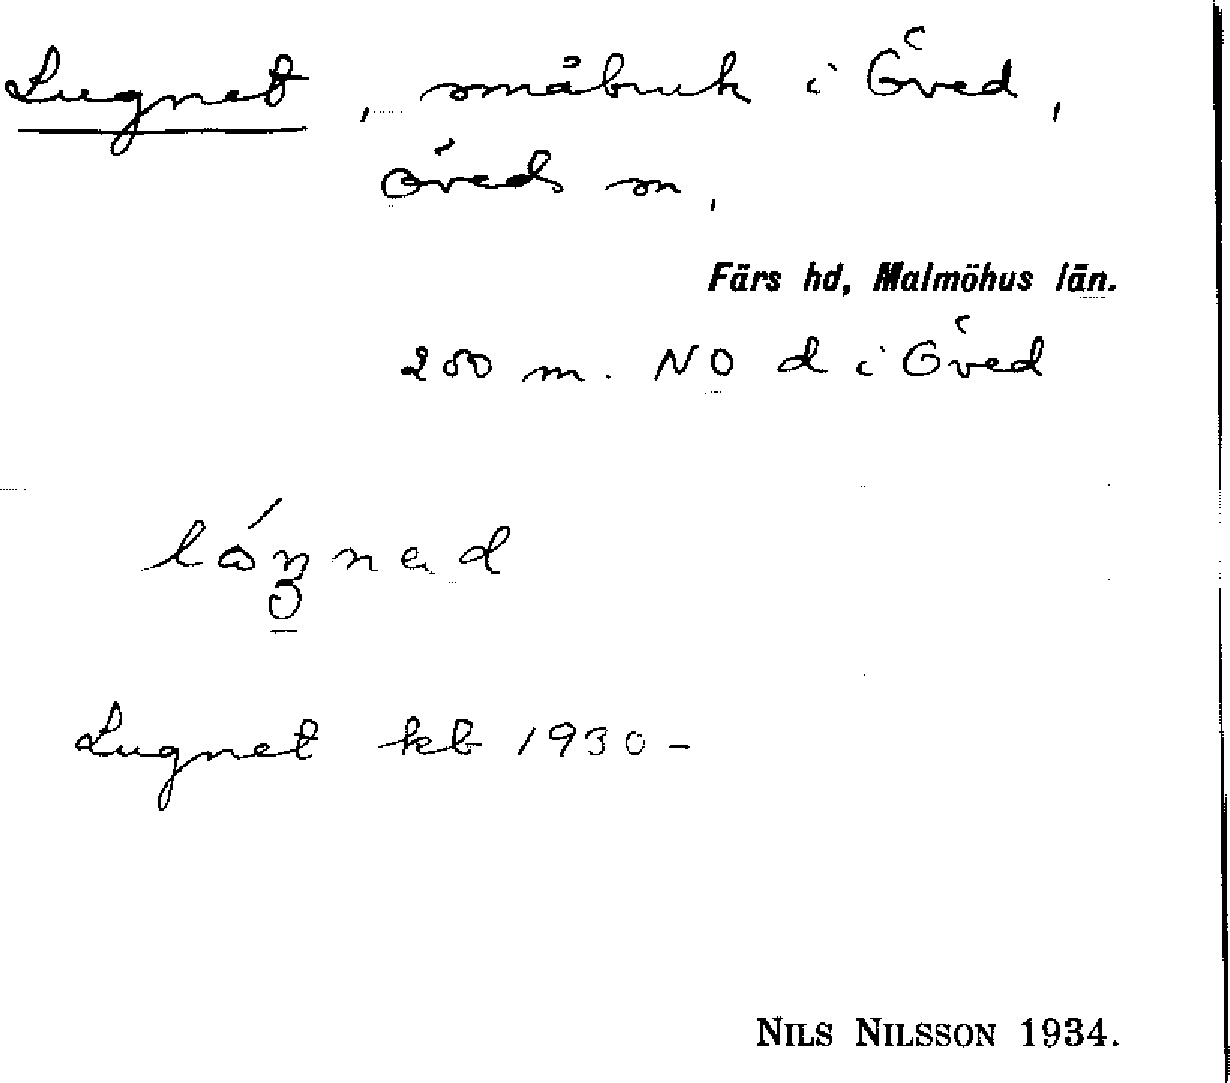 Lugnet, småbruk i Öved,
Öveds sn,
Färs hd, Malmöhus län.
200 m. NO d i Öved
Lugnet kb 1930-
NILS NILSSON 1934.